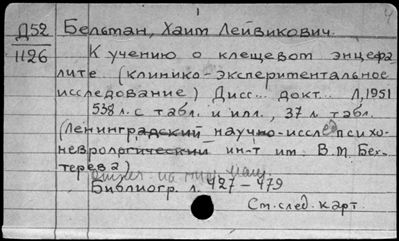 Д52
1126
4
Бельтан, Хаит Лейвикович.
К учению о клещевот энцефа-
лите (клинико-экспериментальное
исследование) Дисс... докт... Л, 1951
538 л. с табл. и илл., 37 л. табл.
(Ленинградский научно-исслед психо-
неврологический ин-т им. В.М. Бех-
терева)
на маш.
Библиогр. л. 427-479
См. след. карт.